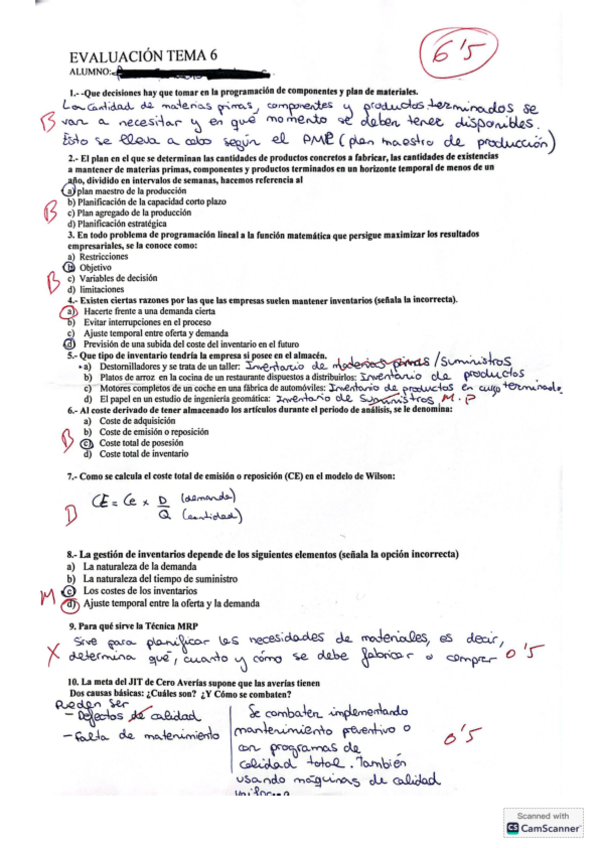 EVALUACIÓN TEMA 6
6'5
ALUMNO:
1.- -Que decisiones hay que tomar en la programación de componentes y plan de materiales.
La cantidad de materias primas, componentes y productos terminados se
B van a necesitar y en qué momento se deben tener disponibles.
Esto se lleva a cabo según el PMP (plan maestro de producción)
2.- El plan en el que se determinan las cantidades de productos concretos a fabricar, las cantidades de existencias
a mantener de materias primas, componentes y productos terminados en un horizonte temporal de menos de un
año, dividido en intervalos de semanas, hacemos referencia al
a) plan maestro de la producción
b) Planificación de la capacidad corto plazo
B c) Plan agregado de la producción
d) Planificación estratégica
3. En todo problema de programación lineal a la función matemática que persigue maximizar los resultados
empresariales, se la conoce como:
a) Restricciones
b) Objetivo
B c) Variables de decisión
d) limitaciones
4.- Existen ciertas razones por las que las empresas suelen mantener inventarios (señala la incorrecta).
a) Hacerte frente a una demanda cierta
b) Evitar interrupciones en el proceso
c) Ajuste temporal entre oferta y demanda
d) Previsión de una subida del coste del inventario en el futuro
5.- Que tipo de inventario tendría la empresa si posee en el almacén.
a) Destornilladores y se trata de un taller: Inventario de materias primas/suministros
b) Platos de arroz en la cocina de un restaurante dispuestos a distribuirlos: Inventario de productos
c) Motores completos de un coche en una fábrica de automóviles: Inventario de productos en curso terminado
d) El papel en un estudio de ingeniería geomática: Inventario de Suministros M.P
6.- Al coste derivado de tener almacenado los artículos durante el periodo de análisis, se le denomina:
a) Coste de adquisición
b) Coste de emisión o reposición
B c) Coste total de posesión
d) Coste total de inventario
7.- Como se calcula el coste total de emisión o reposición (CE) en el modelo de Wilson:
CE = Ce x D (demanda)
Q (cantidad)
8.- La gestión de inventarios depende de los siguientes elementos (señala la opción incorrecta)
a) La naturaleza de la demanda
b) La naturaleza del tiempo de suministro
M c) Los costes de los inventarios
d) Ajuste temporal entre la oferta y la demanda
9. Para qué sirve la Técnica MRP
Sirve para planificar las necesidades de materiales, es decir,
X determina qué, cuanto y cómo se debe fabricar o comprar 0'5
10. La meta del JIT de Cero Averías supone que las averías tienen
Dos causas básicas: ¿Cuáles son? ¿Y Cómo se combaten?
Pueden ser
- Defectos de calidad
- Falta de matenimiento
Se combaten implementando
mantenimiento preventivo o
con programas de
calidad total. También
usando máquinas de calidad
uniforme
0'5
Scanned with
CS CamScanner